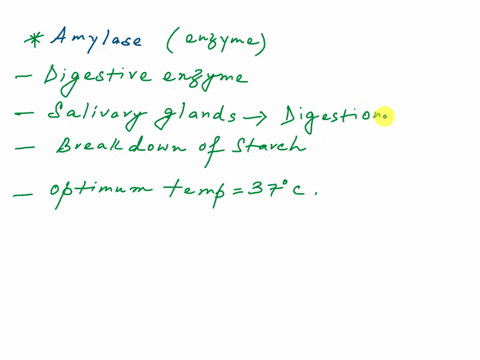 * Amylase (enzyme)
- Digestive enzyme
- Salivary glands → Digestion.
- Breakdown of Starch
- optimum temp = 37°c.